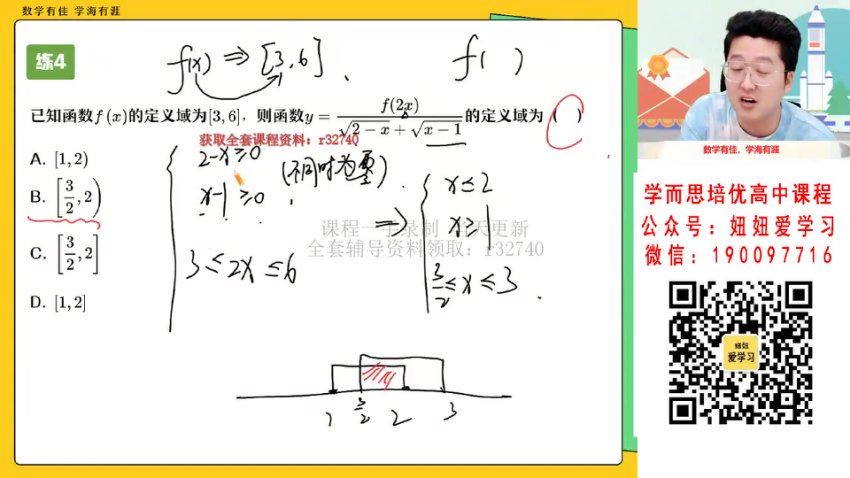 数学有佳 学海有涯
f(x) ⇒ [3,6]
f( )
练4
已知函数f(x)的定义域为[3,6]，则函数y=f(2x)/(√(2-x)+√(x-1))的定义域为( )
获取全套课程资料：r32740
A. [1,2)
B. [3/2,2)
C. [3/2,2]
D. [1,2]
2-x≥0
x-1≥0
(不同时为零)
3≤2x≤6
⇒
x≤2
x≥1
3/2≤x≤3
1 3/2 2 3
课程一手录制 当天更新
全套辅导资料领取：r32740
数学有佳，学海有涯
学而思培优高中课程
公众号：妞妞爱学习
微信：190097716
妞妞
爱学习